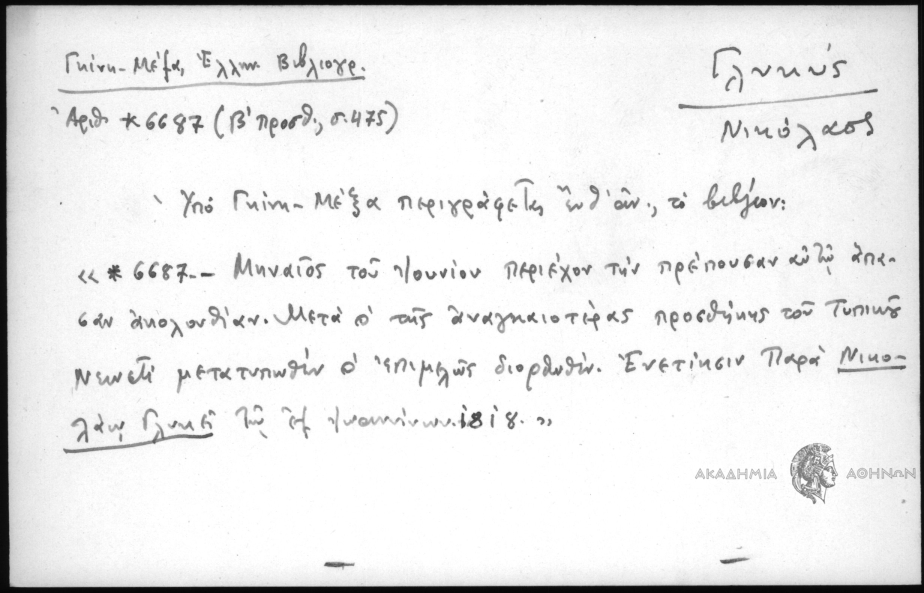 Γκίνη-Μέξα, Ἑλλην. Βιβλιογρ.
Γλυκύς
Ἀριθ. *6687 (Β' προσθ., σ. 475)
Νικόλαος
Ὑπό Γκίνη-Μέξα περιγράφεται, τό βιβλίον:
«*6687.- Μηναῖος τοῦ Ἰουνίου περιέχον τήν πρέπουσαν αὐτῷ ἅπα-
σαν ἀκολουθίαν. Μετά τῆς ἀναγκαιοτέρας προσθήκης τοῦ Τυπικοῦ
Νεωστί μετατυπωθέν ἐπιμελῶς διορθωθέν. Ἐνετίησιν Παρά Νικο-
λάῳ Γλυκεῖ τῷ ἐξ Ἰωαννίνων. 1818.»
ΑΚΑΔΗΜΙΑ ΑΘΗΝΩΝ